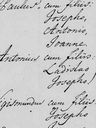 Paulus cum filiis
Josepho
Antonio,
Joanne
Antonius cum filiis
Ladislao
Josepho
Sigismundus cum filiis
Josepho